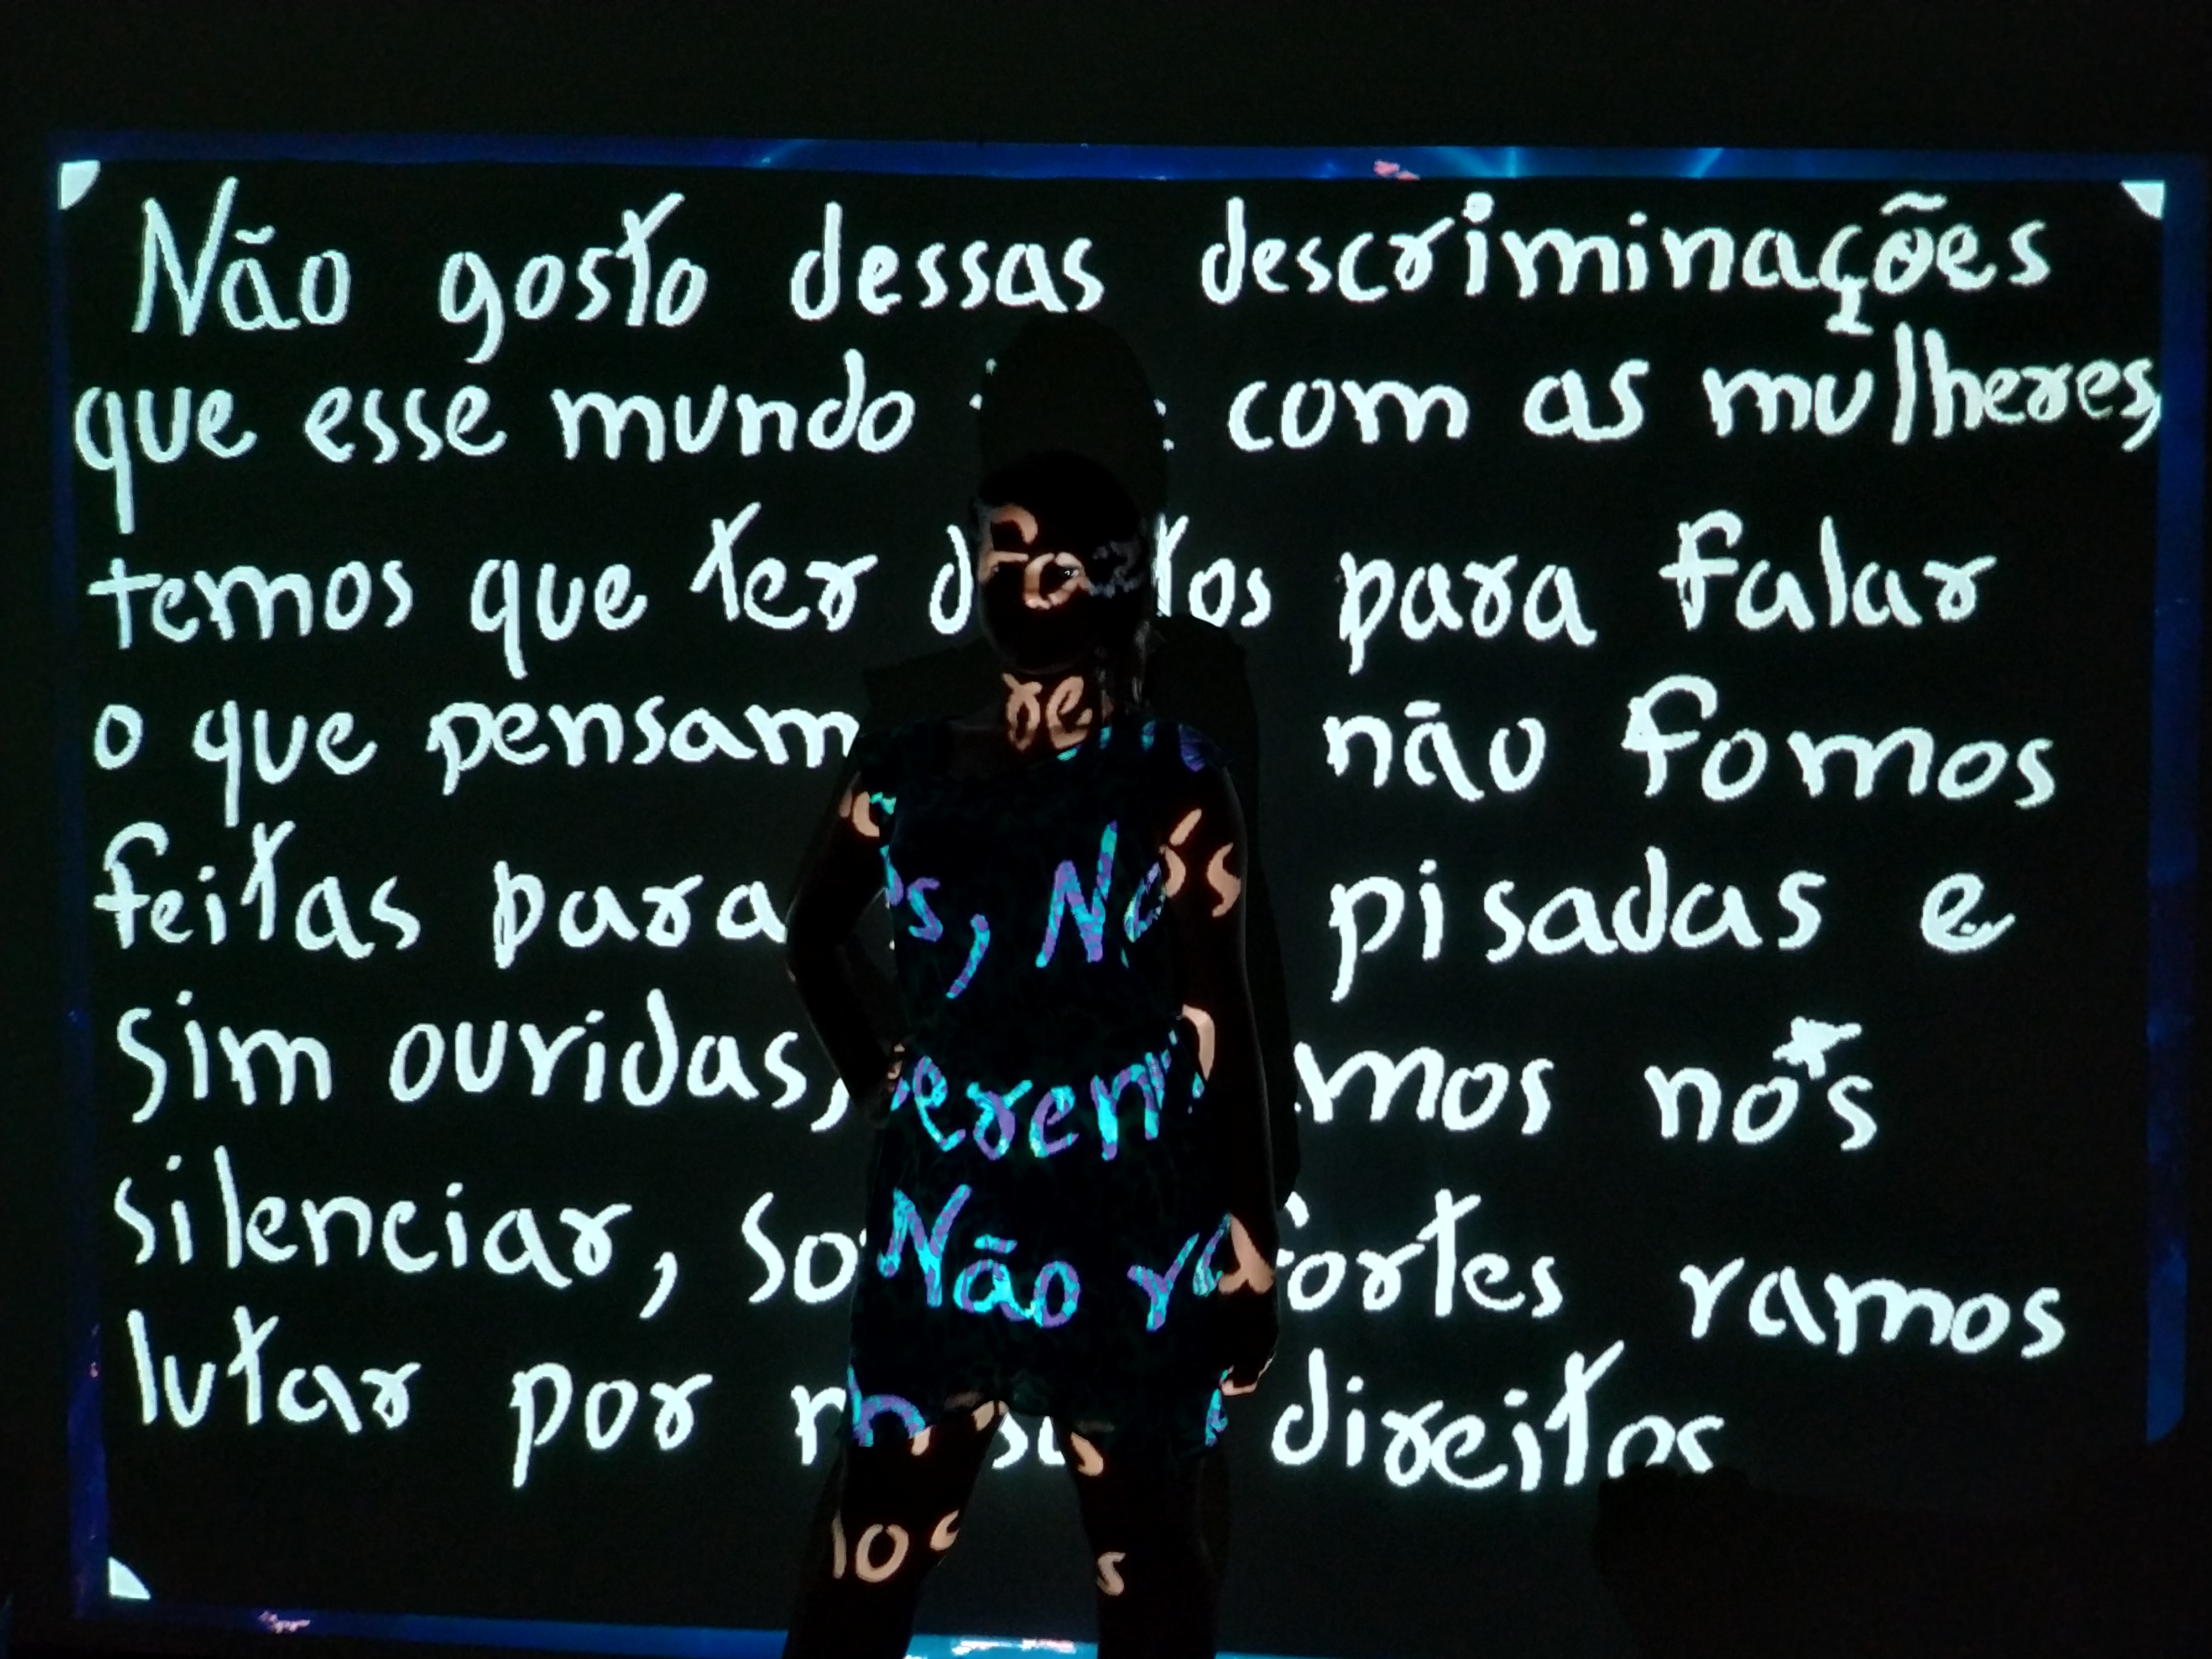 Não gosto dessas descriminações
que esse mundo com as mulheres,
temos que ter direitos para falar
o que pensamos, Nós não fomos
feitas para serem pisadas e
sim ouvidas, Não vamos nós
silenciar, Somos fortes vamos
lutar por nossos direitos